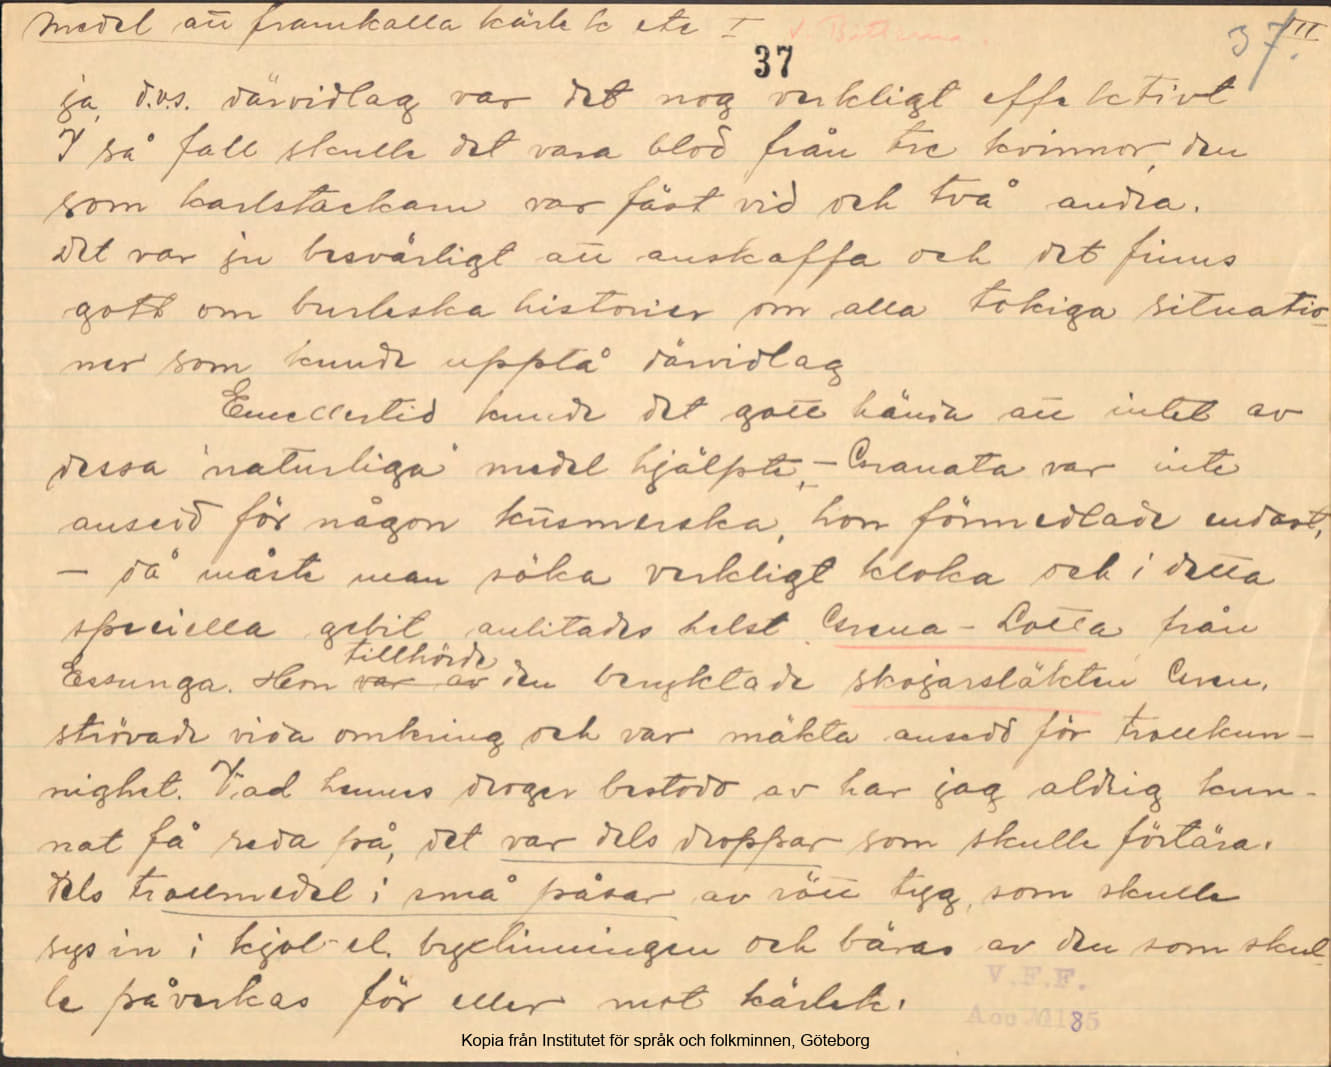 Medel att framkalla kärlek etc I
37
37. III
ja, d.v.s. därvidlag var det nog verkligt effektivt
I så fall skulle det vara blod från tre kvinnor, den
som karlstackarn var fäst vid och två andra.
Det var ju besvärligt att anskaffa och det finns
gott om burleska historier om alla tokiga situatio-
ner som kunde uppstå därvidlag
Emellertid kunde det gott hända att intet av
dessa "naturliga" medel hjälpte, – Granata var inte
ansedd för någon kusmerska, hon förmedlade endast,
– då måste man söka verkligt kloka och i detta
speciella gebit anlitades helst Lotta från
Essunga. Hon var av tillhörde den beryktade skojarsläkten
strövade vida omkring och var mäkta ansedd för trollkun-
nighet. Vad hennes droger bestodo av har jag aldrig kun-
nat få reda på, det var dels droppar som skulle förtära.
dels trollmedel i små påsar av rött tyg, som skulle
sys in i kjol- el. byxlinningen och bäras av den som skul-
le påverkas för eller mot kärlek.
V.F.F.
Acc. N:185
Kopia från Institutet för språk och folkminnen, Göteborg